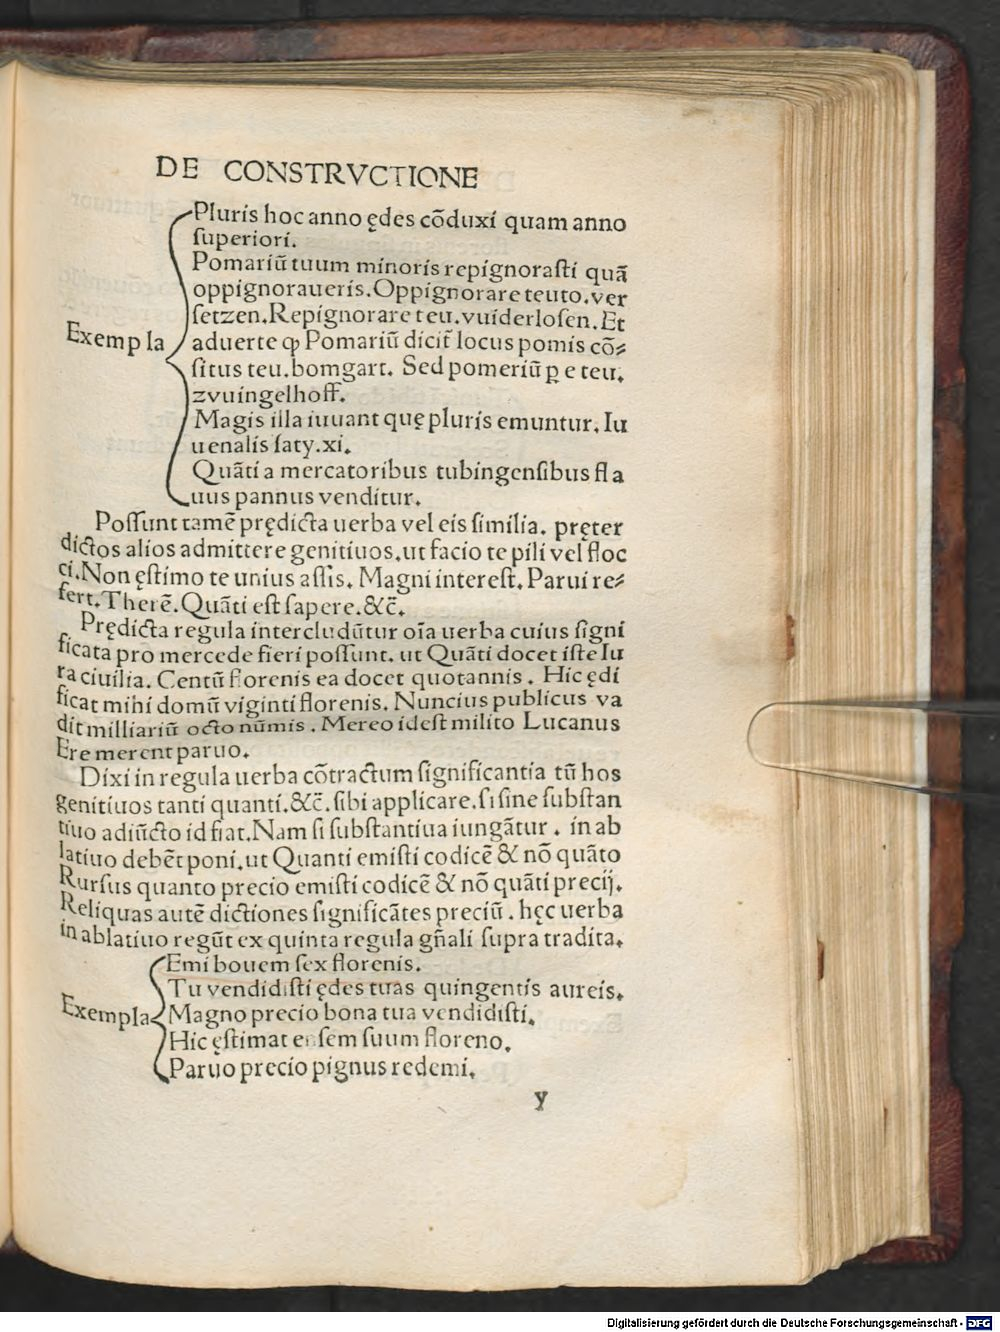 DE CONSTRVCTIONE
Pluris hoc anno ędes cōduxi quam anno
ſuperiori.
Pomariū tuum minoris repignoraſti quā
oppignoraueris. Oppignorare teuto. ver
ſetzen. Repignorare teu. vuiderloſen. Et
Exempla
aduerte ꝙ Pomariū dicit̄ locus pomis cō⸗
ſitus teu. bomgart. Sed pomeriū ꝑ e teu.
zvuingelhoff.
Magis illa iuuant quę pluris emuntur. Iu
uenalis ſaty. xi.
Quāti a mercatoribus tubingenſibus fla
uus pannus venditur.
Poſſunt tamē prędicta uerba vel eis ſimilia. pręter
dictos alios admittere genitiuos. ut facio te pili vel floc
ci. Non ęſtimo te unius aſſis. Magni intereſt. Parui re⸗
fert. Therē. Quāti eſt ſapere. &c̄.
Prędicta regula intercludūtur oīa uerba cuius ſigni
ficata pro mercede fieri poſſunt. ut Quāti docet iſte Iu
ra ciuilia. Centū florenis ea docet quotannis. Hic ędi
ficat mihi domū viginti florenis. Nuncius publicus va
dit milliariū octo nūmis. Mereo ideſt milito Lucanus
Ere merent paruo.
Dixi in regula uerba cōtractum ſignificantia tū hos
genitiuos tanti quanti. &c̄. ſibi applicare. ſi ſine ſubſtan
tiuo adiūcto id fiat. Nam ſi ſubſtantiua iungātur. in ab
latiuo debēt poni. ut Quanti emiſti codicē & nō quāto
Rurſus quanto precio emiſti codicē & nō quāti precij.
Reliquas autē dictiones ſignificātes preciū. hęc uerba
in ablatiuo regūt ex quinta regula gn̄ali ſupra tradita.
Emi bouem ſex florenis.
Tu vendidiſti ędes tuas quingentis aureis.
Exempla
Magno precio bona tua vendidiſti.
Hic ęſtimat enſem ſuum floreno.
Paruo precio pignus redemi.
y
Digitalisierung gefördert durch die Deutsche Forschungsgemeinschaft - DFG